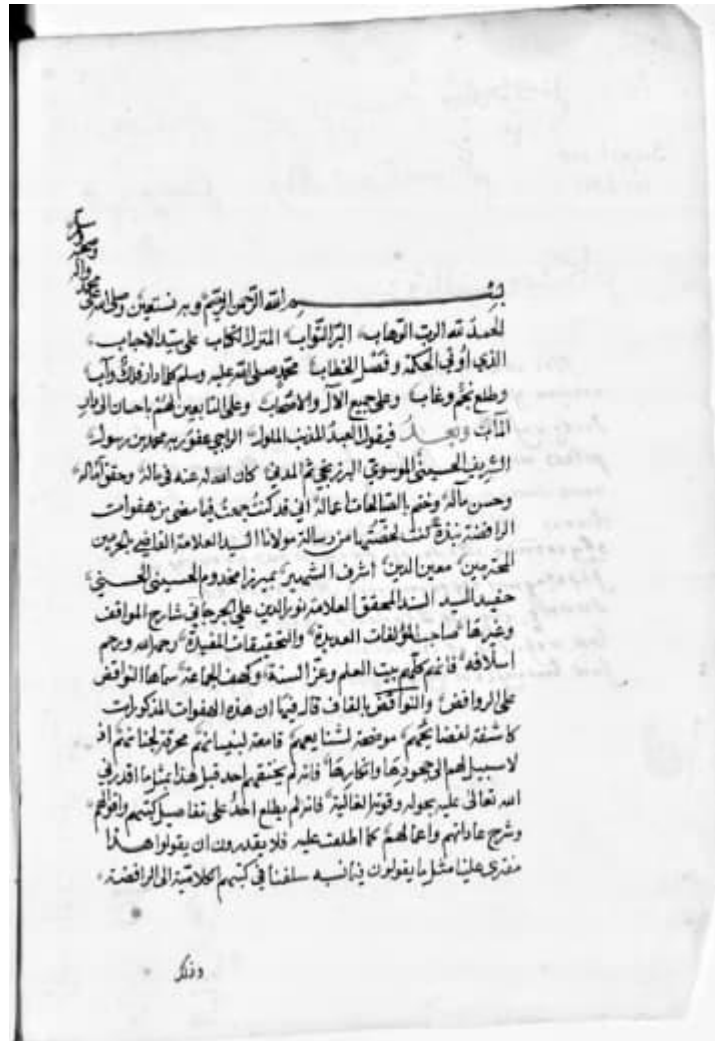 بسم الله الرحمن الرحيم وبه نستعين وصلى الله على
محمد واله
وصحبه وسلم
الحمد لله الرب الوهاب البر التواب المنزل الكتاب على سيد الاحباب
الذي اوتي الحكمة وفصل الخطاب محمد صلى الله عليه وسلم كلما دار فلك وآب
وطلع نجم وغاب وعلى جميع الآل والاصحاب وعلى التابعين لهم باحسان الى يوم
المآب وبعد فيقول العبد المذنب الملول الراجي عفو ربه محمد بن رسول
الشريف الحسيني الموسوي البرزنجي ثم المدني كان الله له عنه في ماله وحقق آماله
وحسن مآله وختم بالصالحات اعماله اني قد كنت جمعت فيما مضى من هفوات
الرافضة نبذة كنت لخصتها من رسالة مولانا السيد العلامة القاضي بالحرمين
المحترمين معين الدين اشرف الشهير بميرزا مخدوم الحسيني الحسني
حفيد السيد السند المحقق العلامة نور الدين علي الجرجاني شارح المواقف
وغيرها صاحب المؤلفات العديدة والتحقيقات المفيدة رحمه الله ورحم
اسلافه فانهم كلهم بيت العلم وعز السنة وكهف الجماعة سماها النواقض
على الروافض والنواقض بالقاف قال فيها ان هذه الهفوات المذكورات
كاشفة لفضايحهم موضحة لشنايعهم قامعة لبنيانهم محرقة لجنانهم اذ
لا سبيل لهم الى جحودها وانكارها فانه لم يحققهم احد قبل هذا بمثل ما اقدرني
الله تعالى عليه بحوله وقوته الغالية فانه لم يطلع احد على تفاصيل كتبهم واقوالهم
وشرح عاداتهم واعمالهم كما اطلعت عليه فلا يقدرون ان يقولوا هذا
مفترى علينا مثل ما يقولون فيما نسبه سلفنا في كتبهم الكلامية الى الرافضة
وذلك